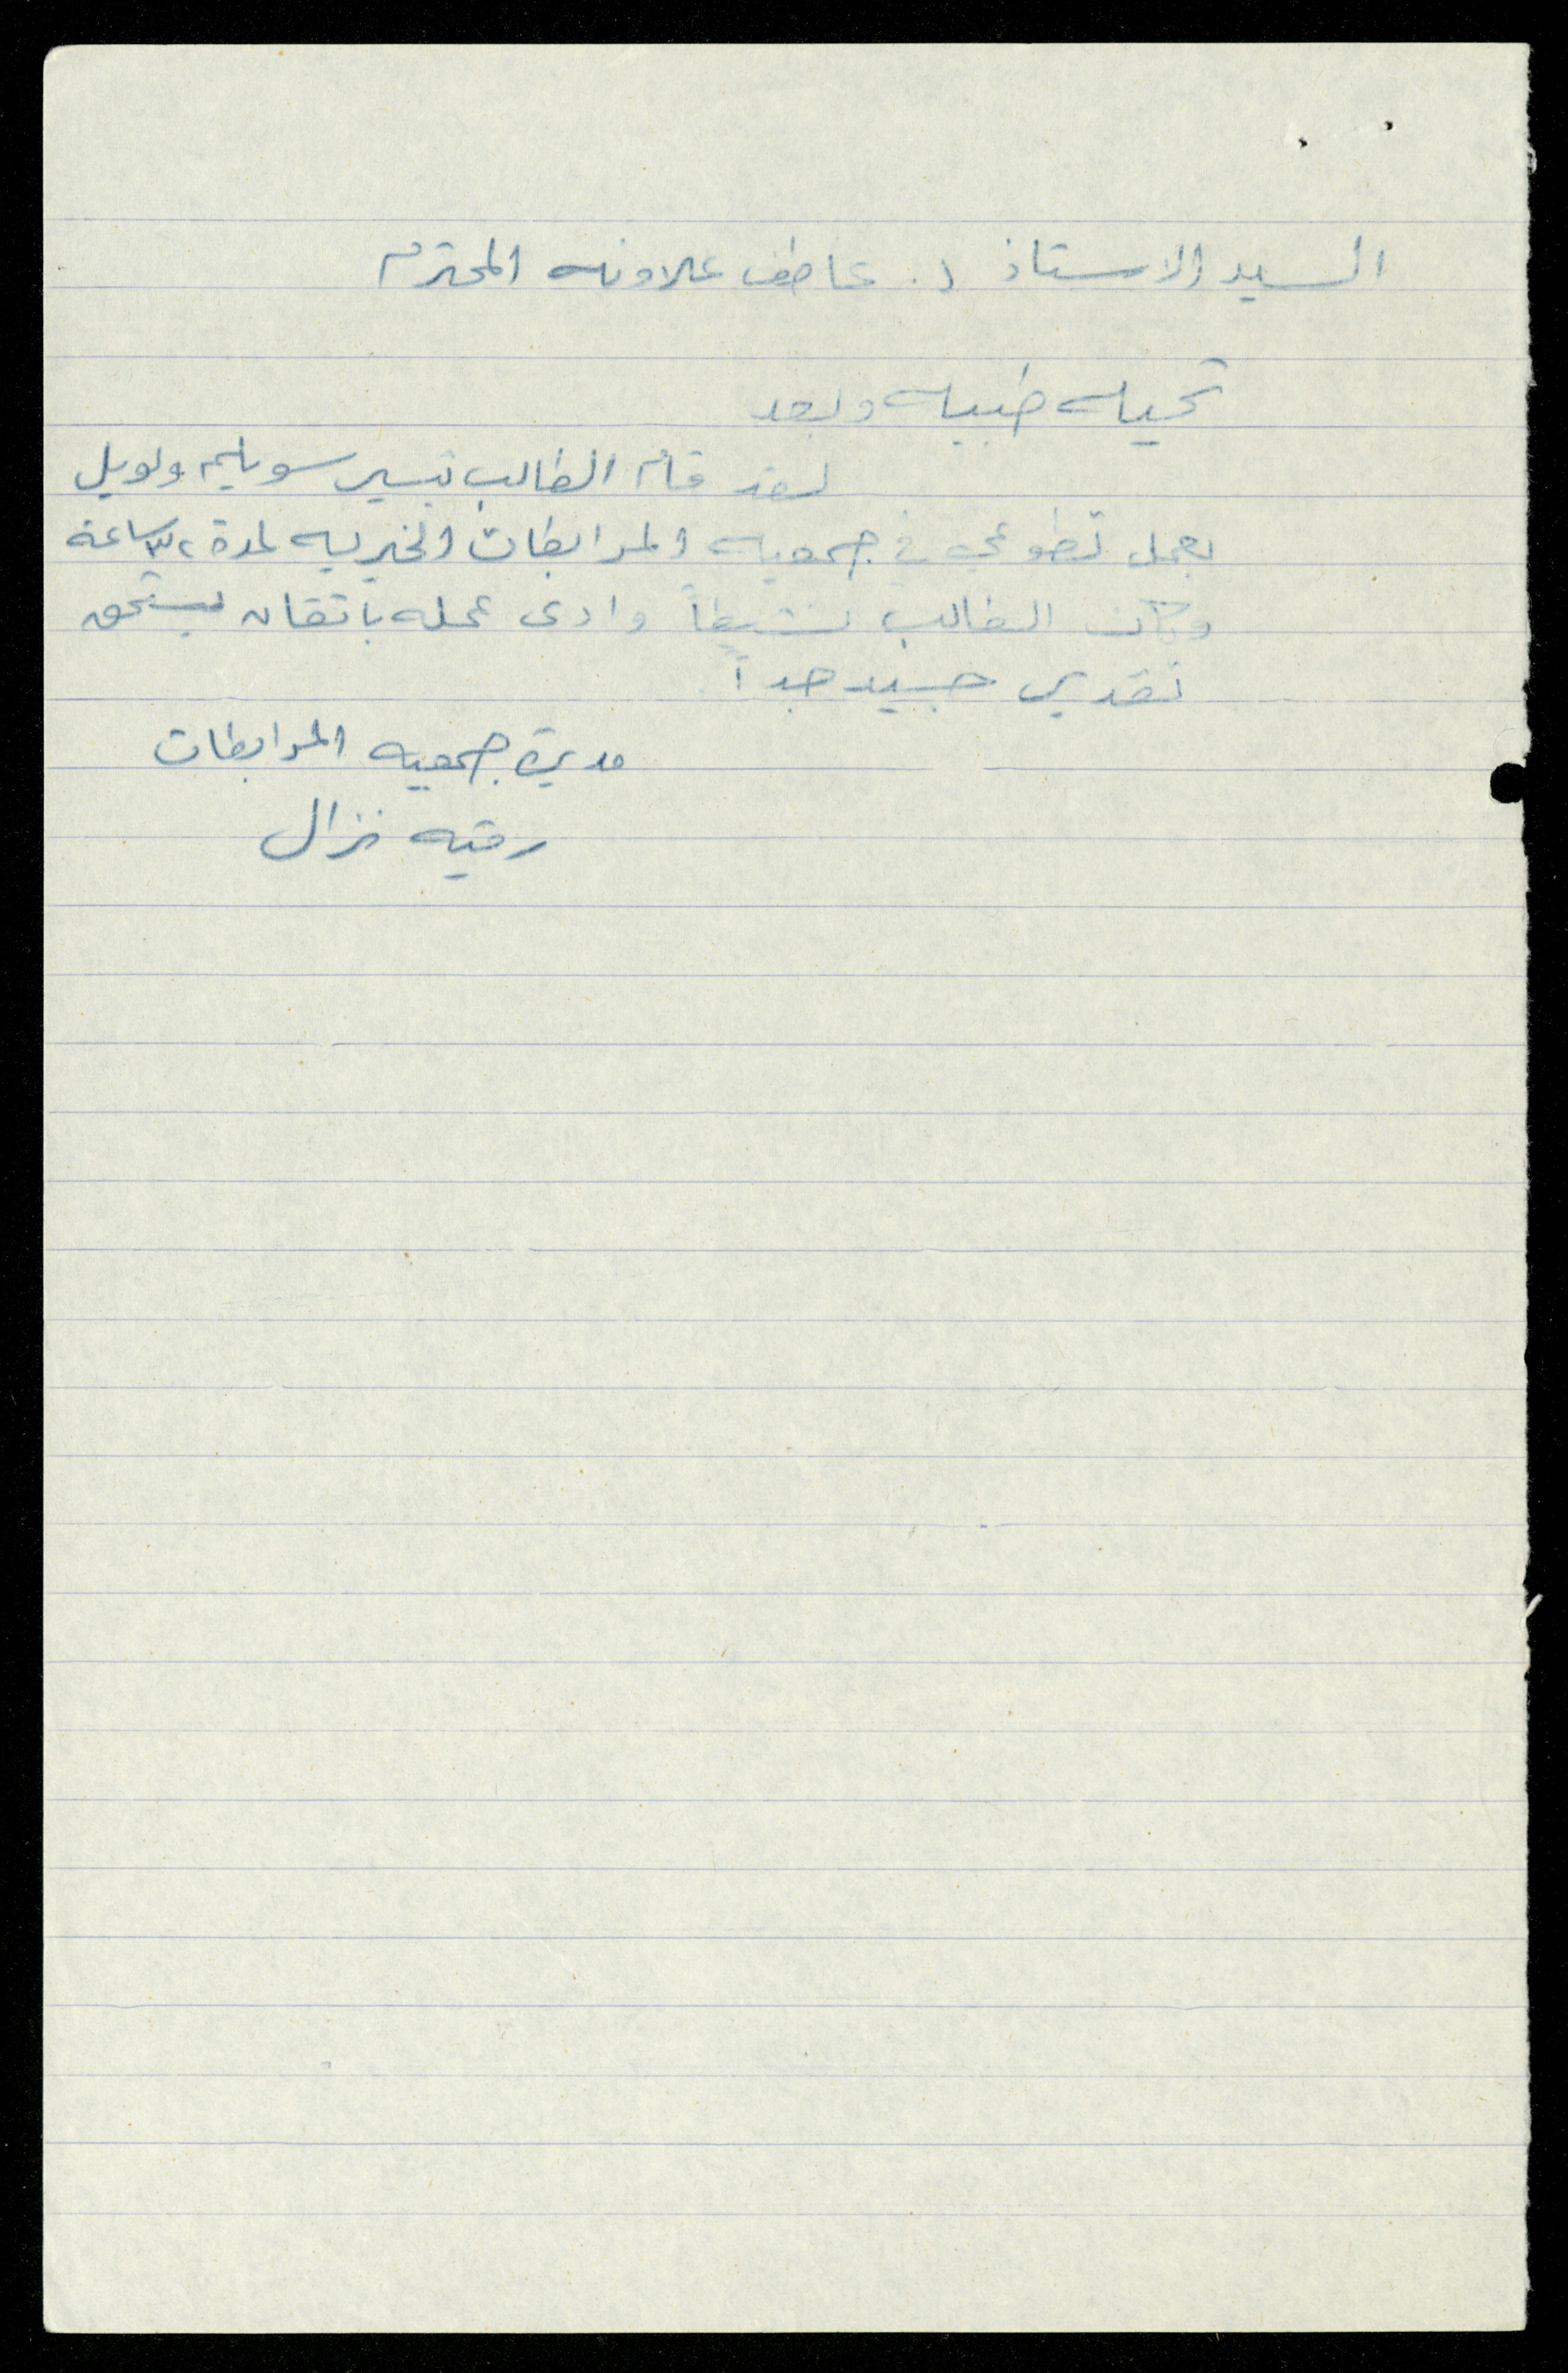 السيد الاستاذ د. عاطف علاونه المحترم
تحيه طيبه وبعد
لقد قام الطالب تيسير سويلم ولويل
بعمل تطوعي في جمعيه المرابطات الخيريه لمدة ساعة
وكان الطالب نشيطاً وادى عمله باتقان يستحق
تقدير جيد جداً
مديرة جمعيه المرابطات
رقيه نزال